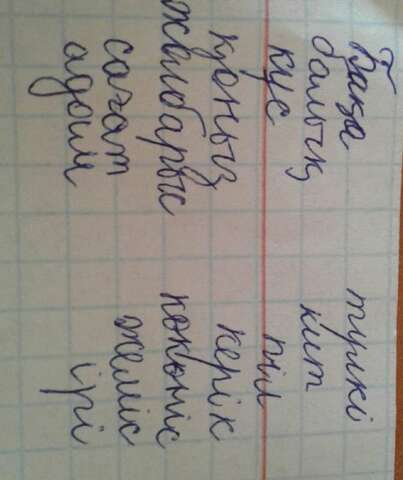 Бақа түлкі
балық кит
құс піл
қоңыз керік
жолбарыс көкөніс
сағат жеміс
адам ірі